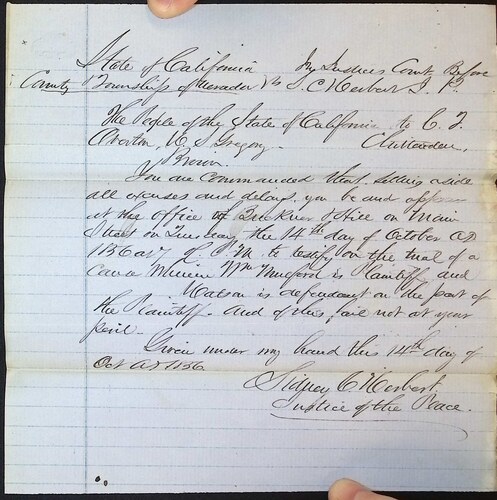 State of California In Justices Court Before
County & Township of Nevada S. C Herbert J. P.
The People of the State of California to C. T.
Overton, H. S. Gregory
Brown.
You are commanded that setting aside
all excuses and delays, you be and appear
at the office of Buckner office on Main
Street on Tuesday the 14th day of October AD
1856 at 7 of P.M. to testify on the trial of a
cause wherein Wm Mugford is Plaintiff and
Watson is defendant on the part of
the Plaintiff. and of this fail not at your
peril.
Given under my hand this 14th day of
Oct AD 1856
Sidney C Herbert
Justice of the Peace.